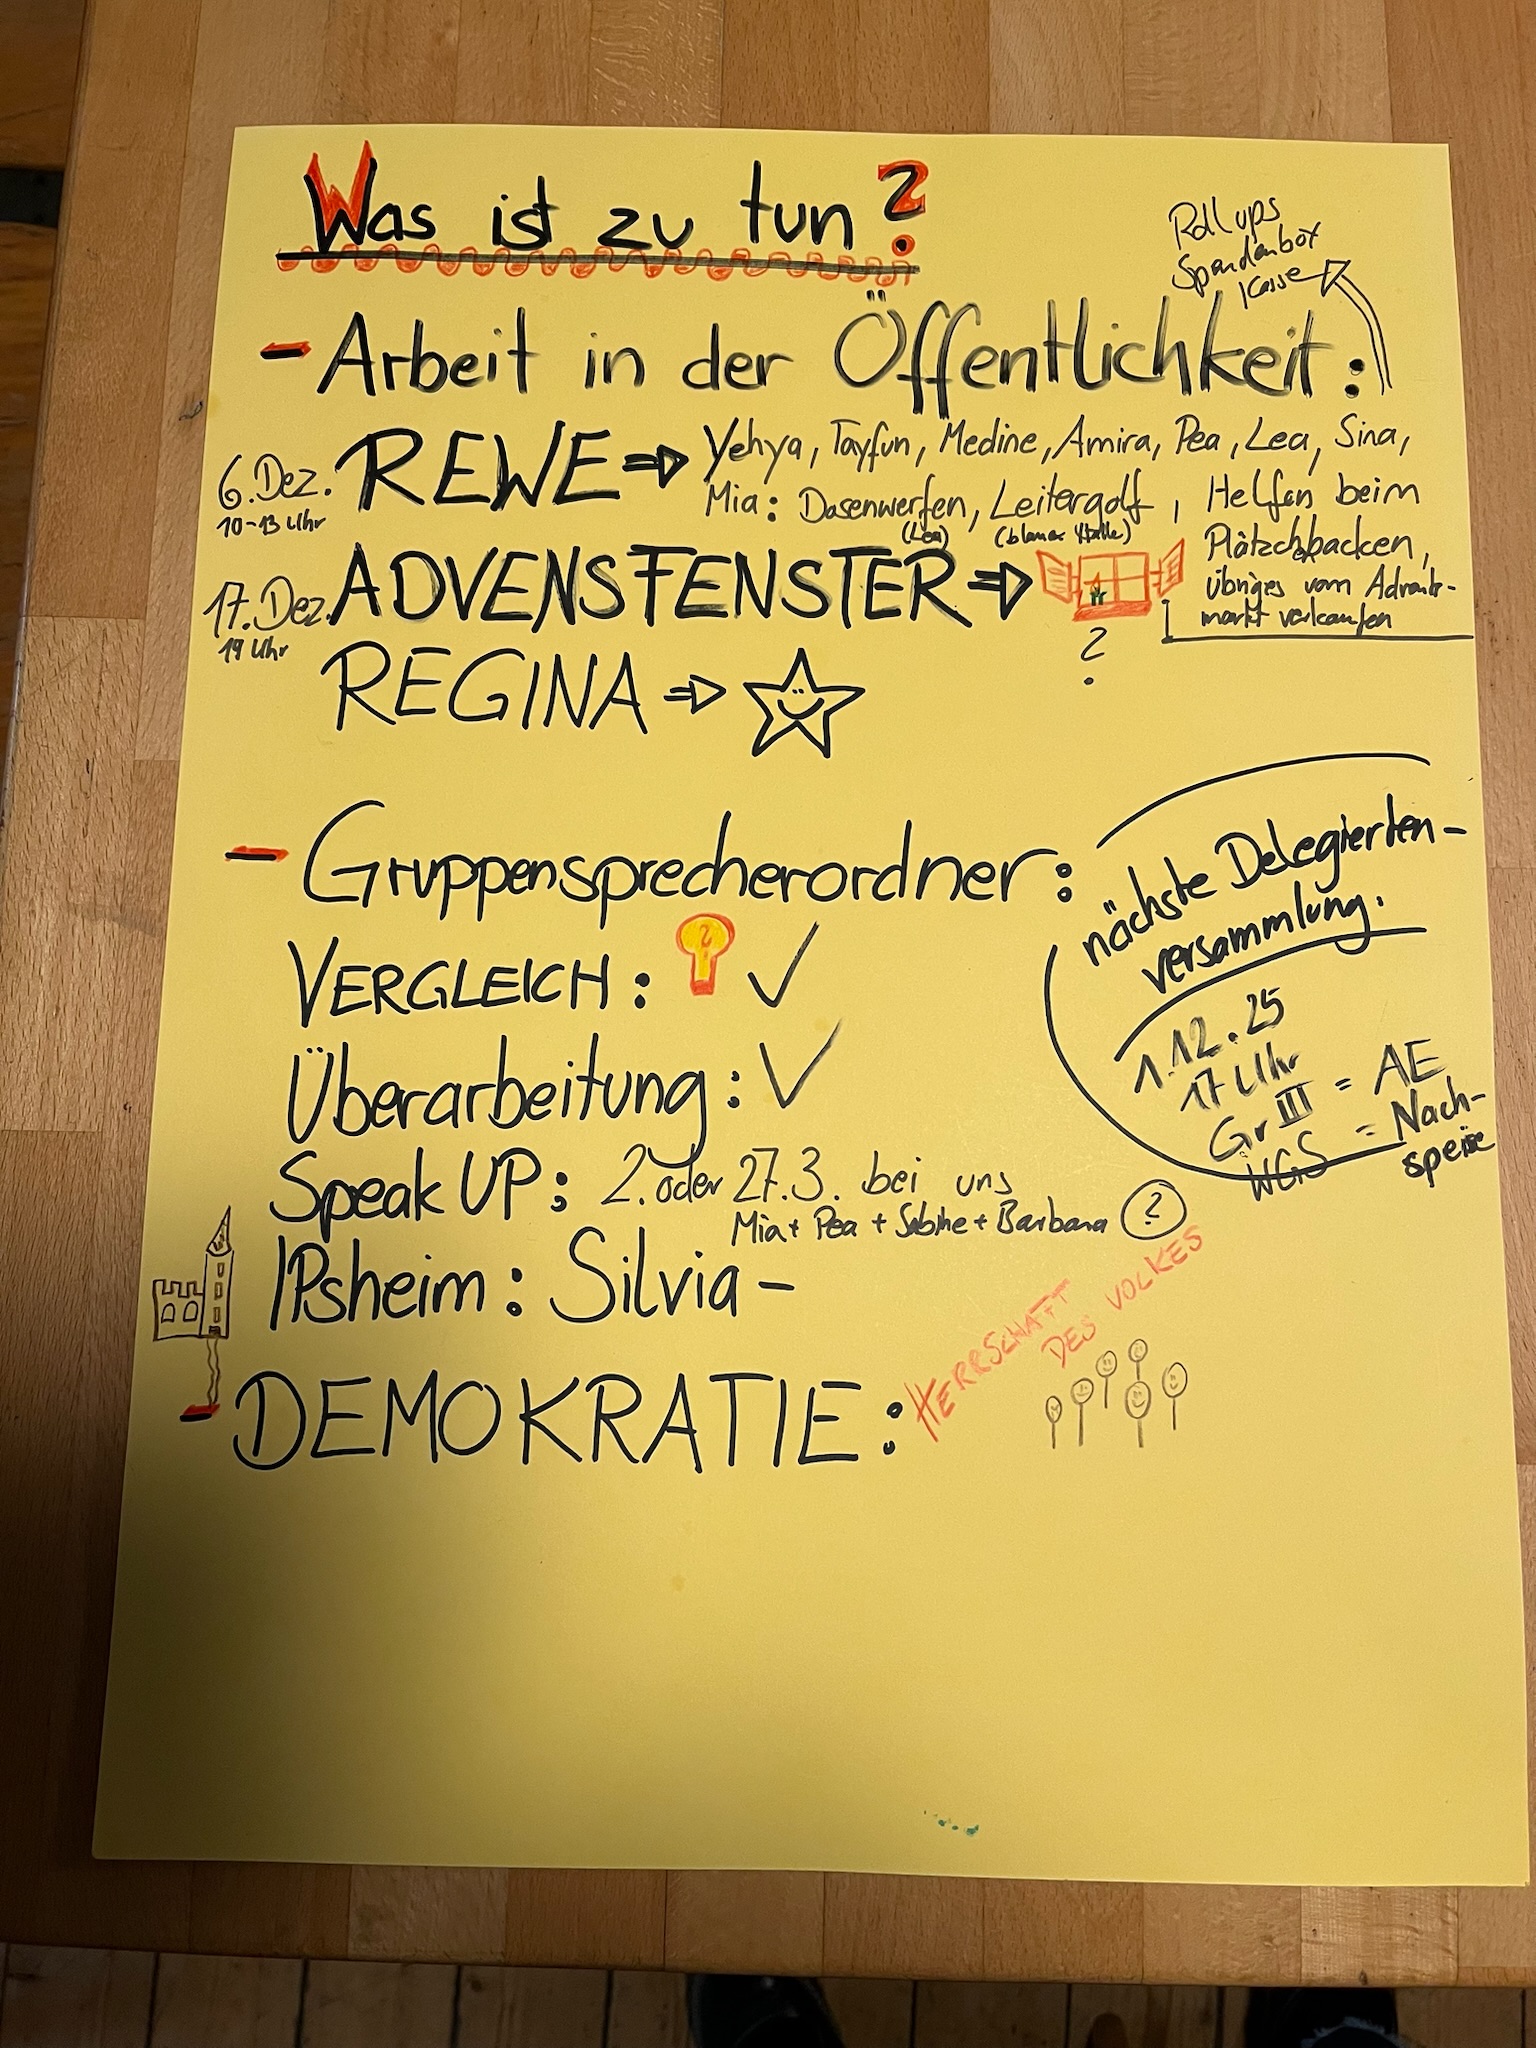 Was ist zu tun?
Roll ups
Spendenbox
Kasse
- Arbeit in der Öffentlichkeit:
6. Dez.
10-13 Uhr
REWE ⇒ Yehya, Tayfun, Medine, Amira, Pea, Lea, Sina,
Mia: Dosenwerfen, Leitergolf, Helfen beim
(Lea) (blaues
Plätzchbacken,
übriges vom Advents-
markt verkaufen
17. Dez.
19 Uhr
ADVENSFENSTER ⇒
?
REGINA ⇒
- Gruppensprecherordner:
VERGLEICH: ? ✓
Überarbeitung: ✓
Speak UP: 2. oder 27.3. bei uns
Mia + Pea + Sabine + Barbara ?
IPsheim: Silvia -
- DEMOKRATIE: HERRSCHAFT
DES VOLKES
nächste Delegierten-
versammlung.
1.12.25
17 Uhr
Gr III = AE
WGS = Nach-
speise